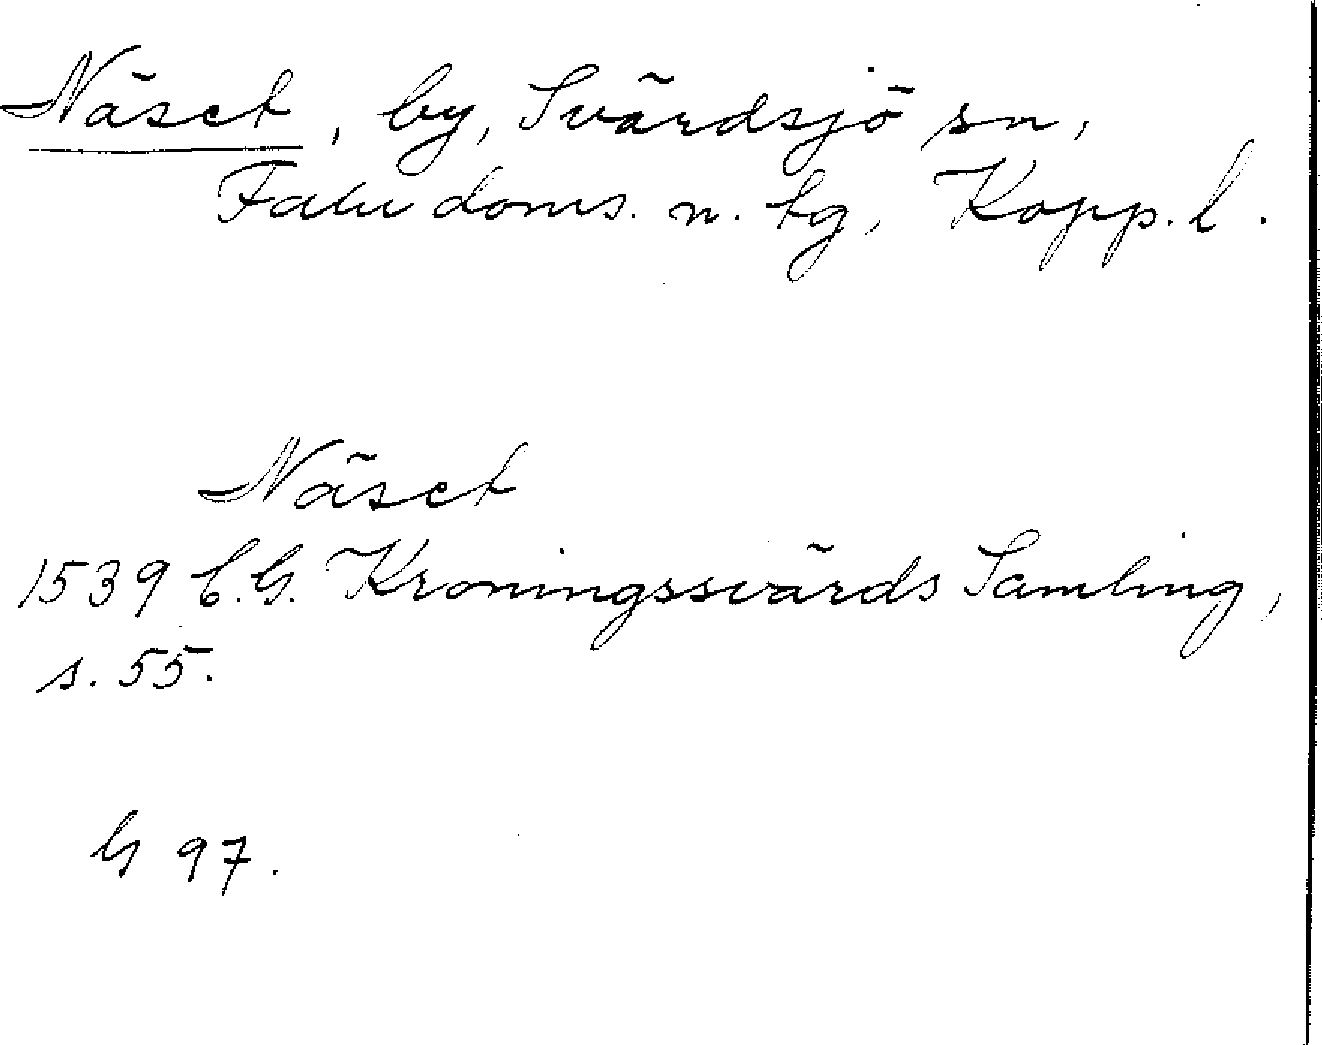 Näset, by, Svärdsjö sn,
Falu doms. n. tg, Kopp. l.
Näset
1539 C.G. Kröningssvärds Samling,
s. 55.
G 97.